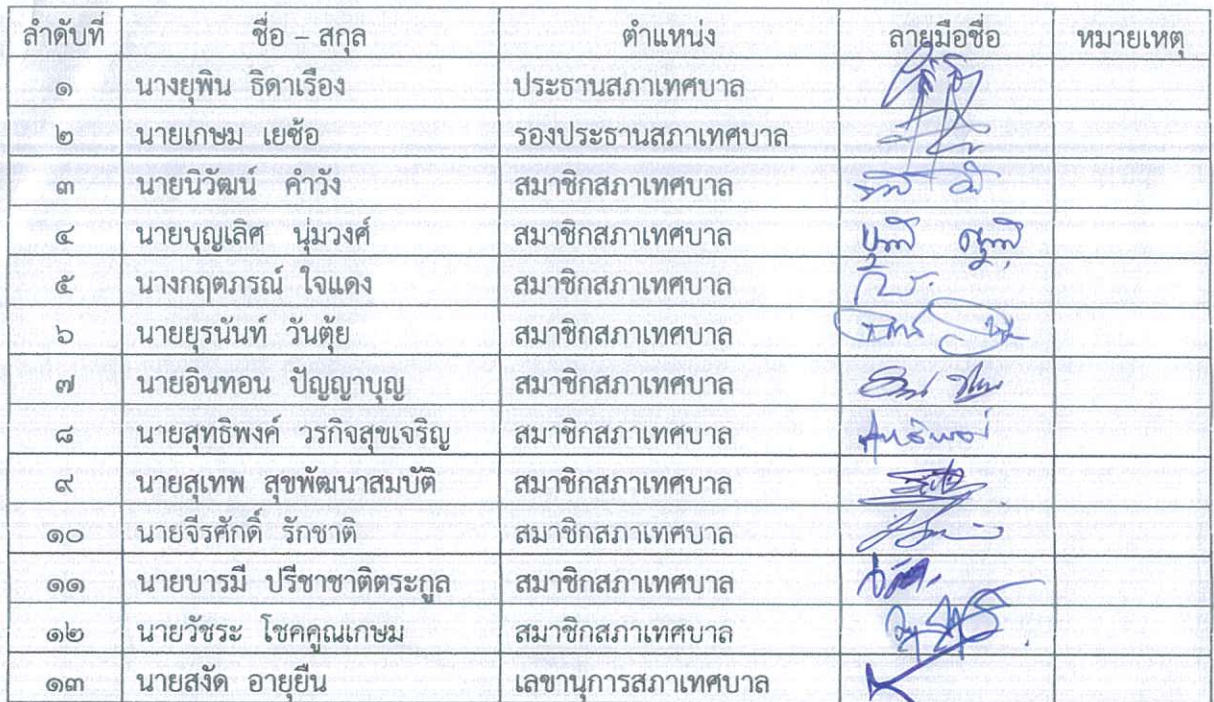 ลำดับที่ ชื่อ – สกุล ตำแหน่ง ลายมือชื่อ หมายเหตุ
๑ นางยุพิน ธิดาเรือง ประธานสภาเทศบาล
๒ นายเกษม เยซ้อ รองประธานสภาเทศบาล
๓ นายนิวัฒน์ คำวัง สมาชิกสภาเทศบาล
๔ นายบุญเลิศ นุ่มวงศ์ สมาชิกสภาเทศบาล
๕ นางกฤตภรณ์ ใจแดง สมาชิกสภาเทศบาล
๖ นายยุรนันท์ วันตุ้ย สมาชิกสภาเทศบาล
๗ นายอินทอน ปัญญาบุญ สมาชิกสภาเทศบาล
๘ นายสุทธิพงค์ วรกิจสุขเจริญ สมาชิกสภาเทศบาล
๙ นายสุเทพ สุขพัฒนาสมบัติ สมาชิกสภาเทศบาล
๑๐ นายจีรศักดิ์ รักชาติ สมาชิกสภาเทศบาล
๑๑ นายบารมี ปรีชาชาติตระกูล สมาชิกสภาเทศบาล
๑๒ นายวัชระ โชคคูณเกษม สมาชิกสภาเทศบาล
๑๓ นายสงัด อายุยืน เลขานุการสภาเทศบาล